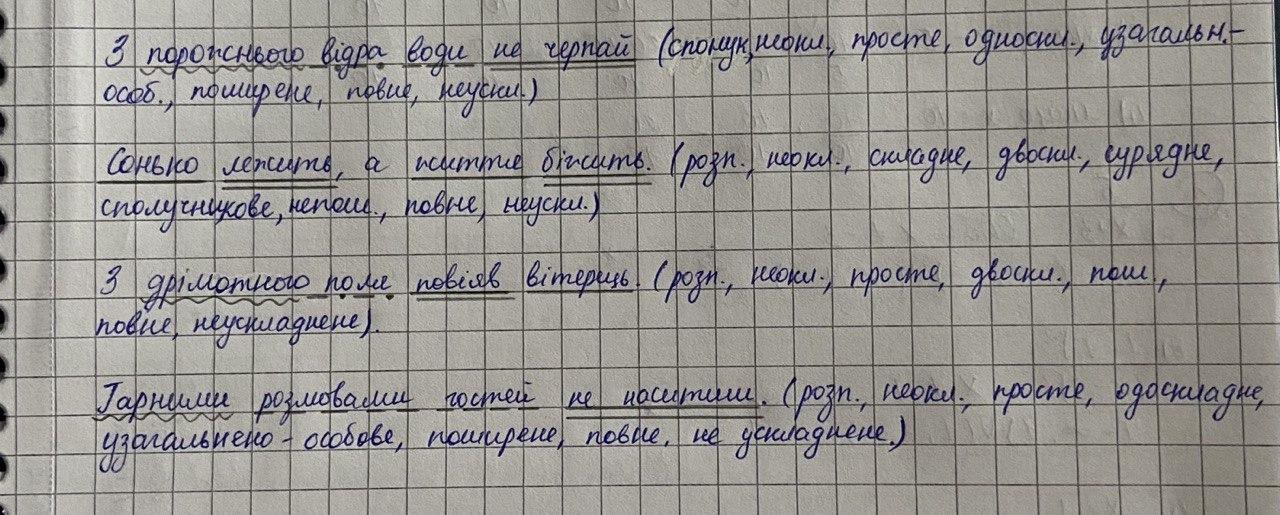 З порожнього відра води не черпай (спонук, неокл, просте, односкл., узагальн.-
особ., поширене, повне, неускл.)
Сонько лежить, а життя біжить. (розп., неокл., складне, двоскл., сурядне,
сполучникове, непош., повне, неускл.)
З дрімотного поля повіяв вітерець. (розп., неокл., просте, двоскл., пош.,
повне, неускладнене).
Гарними розмовами гостей не наситиш. (розп., неокл., просте, одоскладне,
узагальнено-особове, поширене, повне, не ускладнене.)